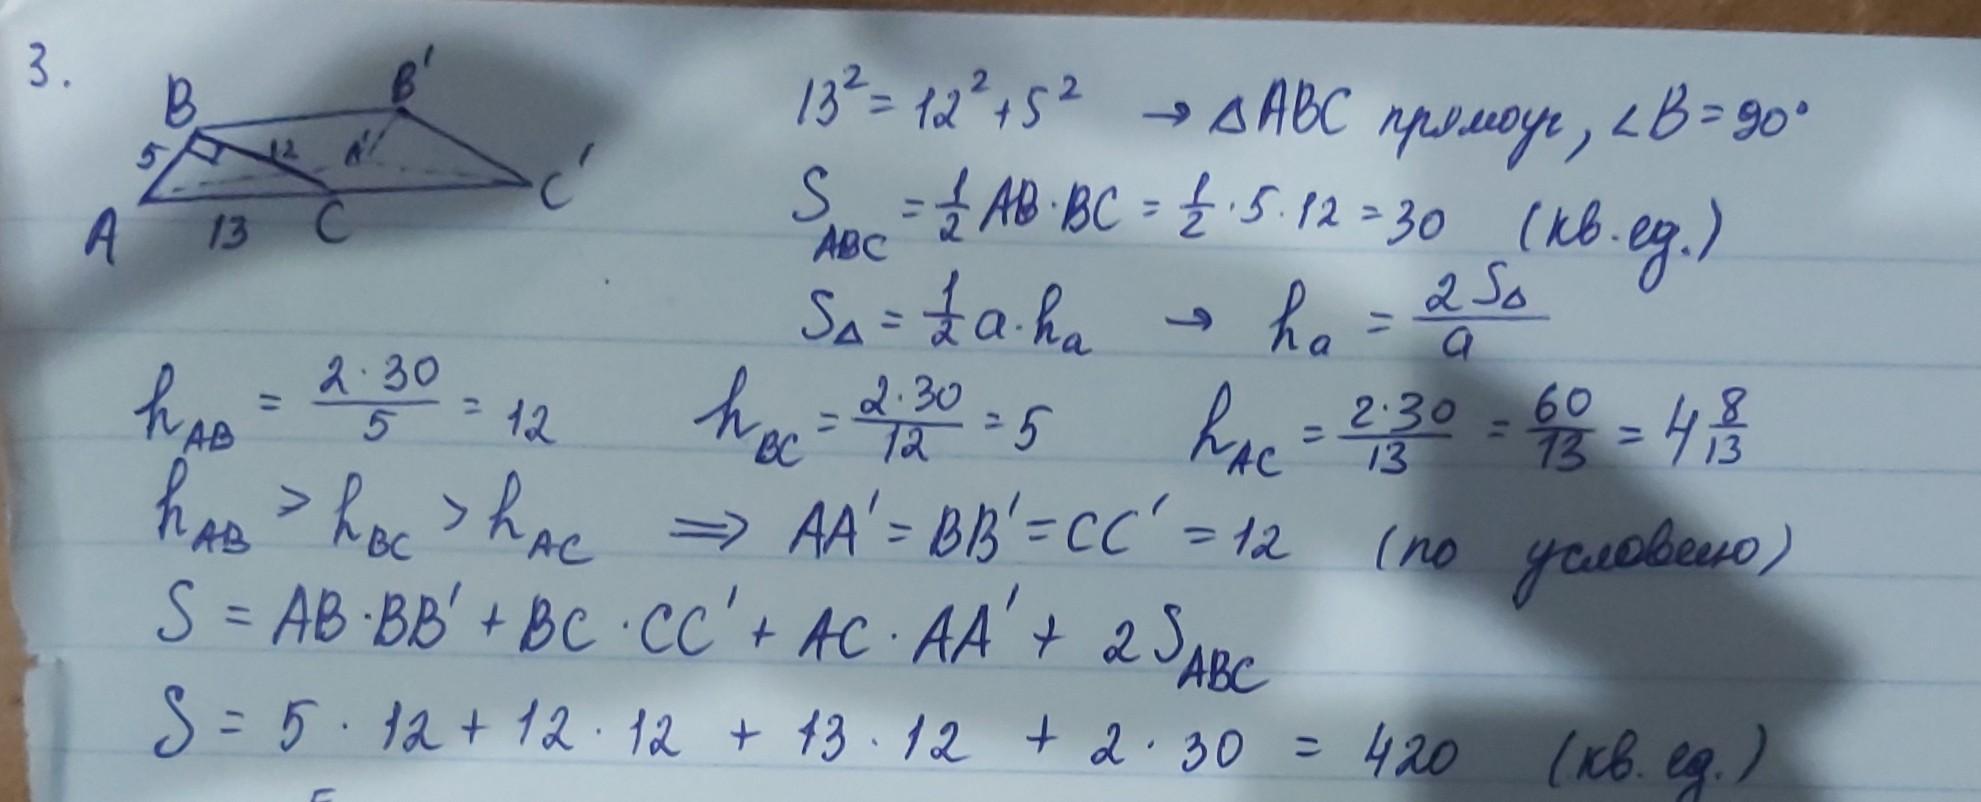 3.
B B'
5 12 A'
A 13 C C'
13² = 12² + 5² → △ABC прямоуг, ∠B = 90°
S_ABC = 1/2 AB · BC = 1/2 · 5 · 12 = 30 (кв. ед.)
S_△ = 1/2 a · h_a → h_a = 2S_△/a
h_AB = 2·30/5 = 12 h_BC = 2·30/12 = 5 h_AC = 2·30/13 = 60/13 = 4 8/13
h_AB > h_BC > h_AC ⟹ AA' = BB' = CC' = 12 (по условию)
S = AB · BB' + BC · CC' + AC · AA' + 2S_ABC
S = 5 · 12 + 12 · 12 + 13 · 12 + 2 · 30 = 420 (кв. ед.)